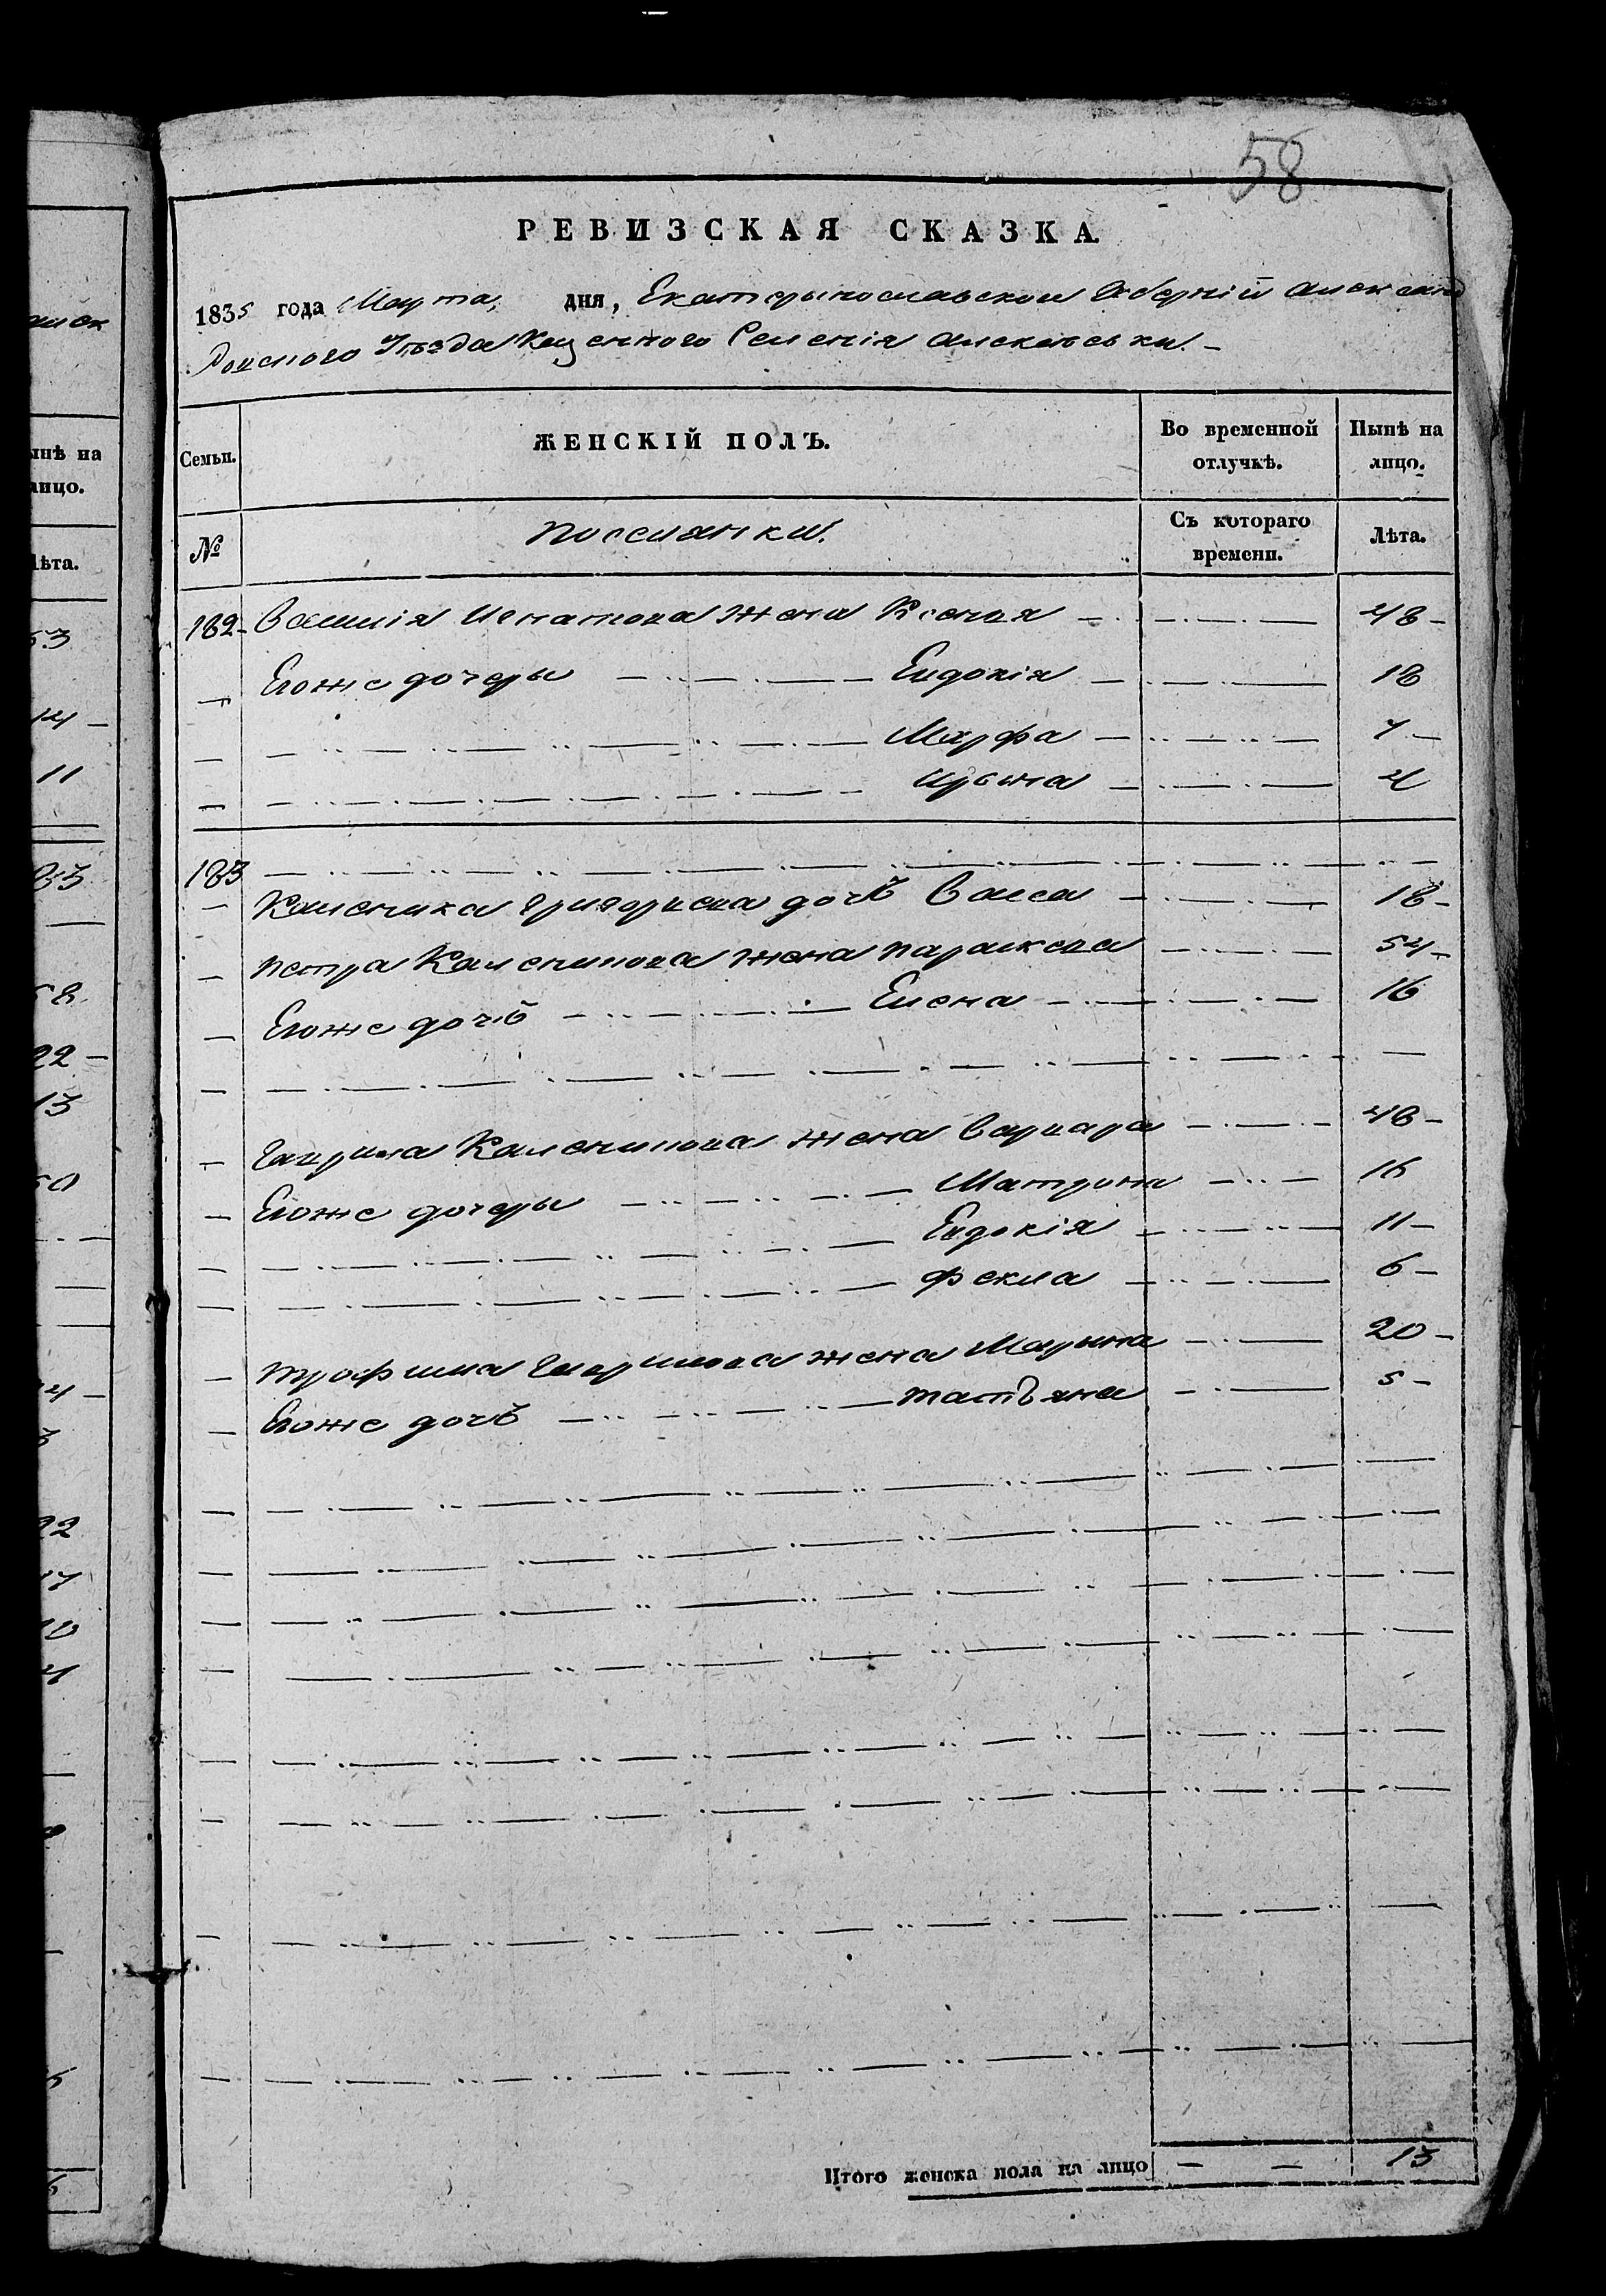 58
РЕВИЗСКАЯ СКАЗКА.
1835 года Марта, дня, Екатерынославской Губернїй Александ
ровского Уѣзда Казенного Селенія Алексѣевки.
Семьи.
ЖЕНСКІЙ ПОЛЪ.
Во временной отлучкѣ.
Нынѣ на лицо.
№
Поселянки.
Съ котораго времени.
Лѣта.
182 Василія Игнатова жена Ксенія 48
Егоже дочеры Евдокія 18
Марфа 7
Ирына 4
183
Каленика Григорiева дочъ Васса 18
Петра Каленикова жена Параскева 54
Егоже дочъ Елена 16
Гаврила Каленикова жена Варвара 48
Егоже дочеры Матрона 16
Евдокія 11
Фекла 6
Трофима Гаврилова жена Марына 20
Егоже дочъ Татъяна 5
Итого женска пола на лицо — — 13
инѣ на
лицо.
Лѣта.
53
14
11
83
58
22
13
50
22
17
10